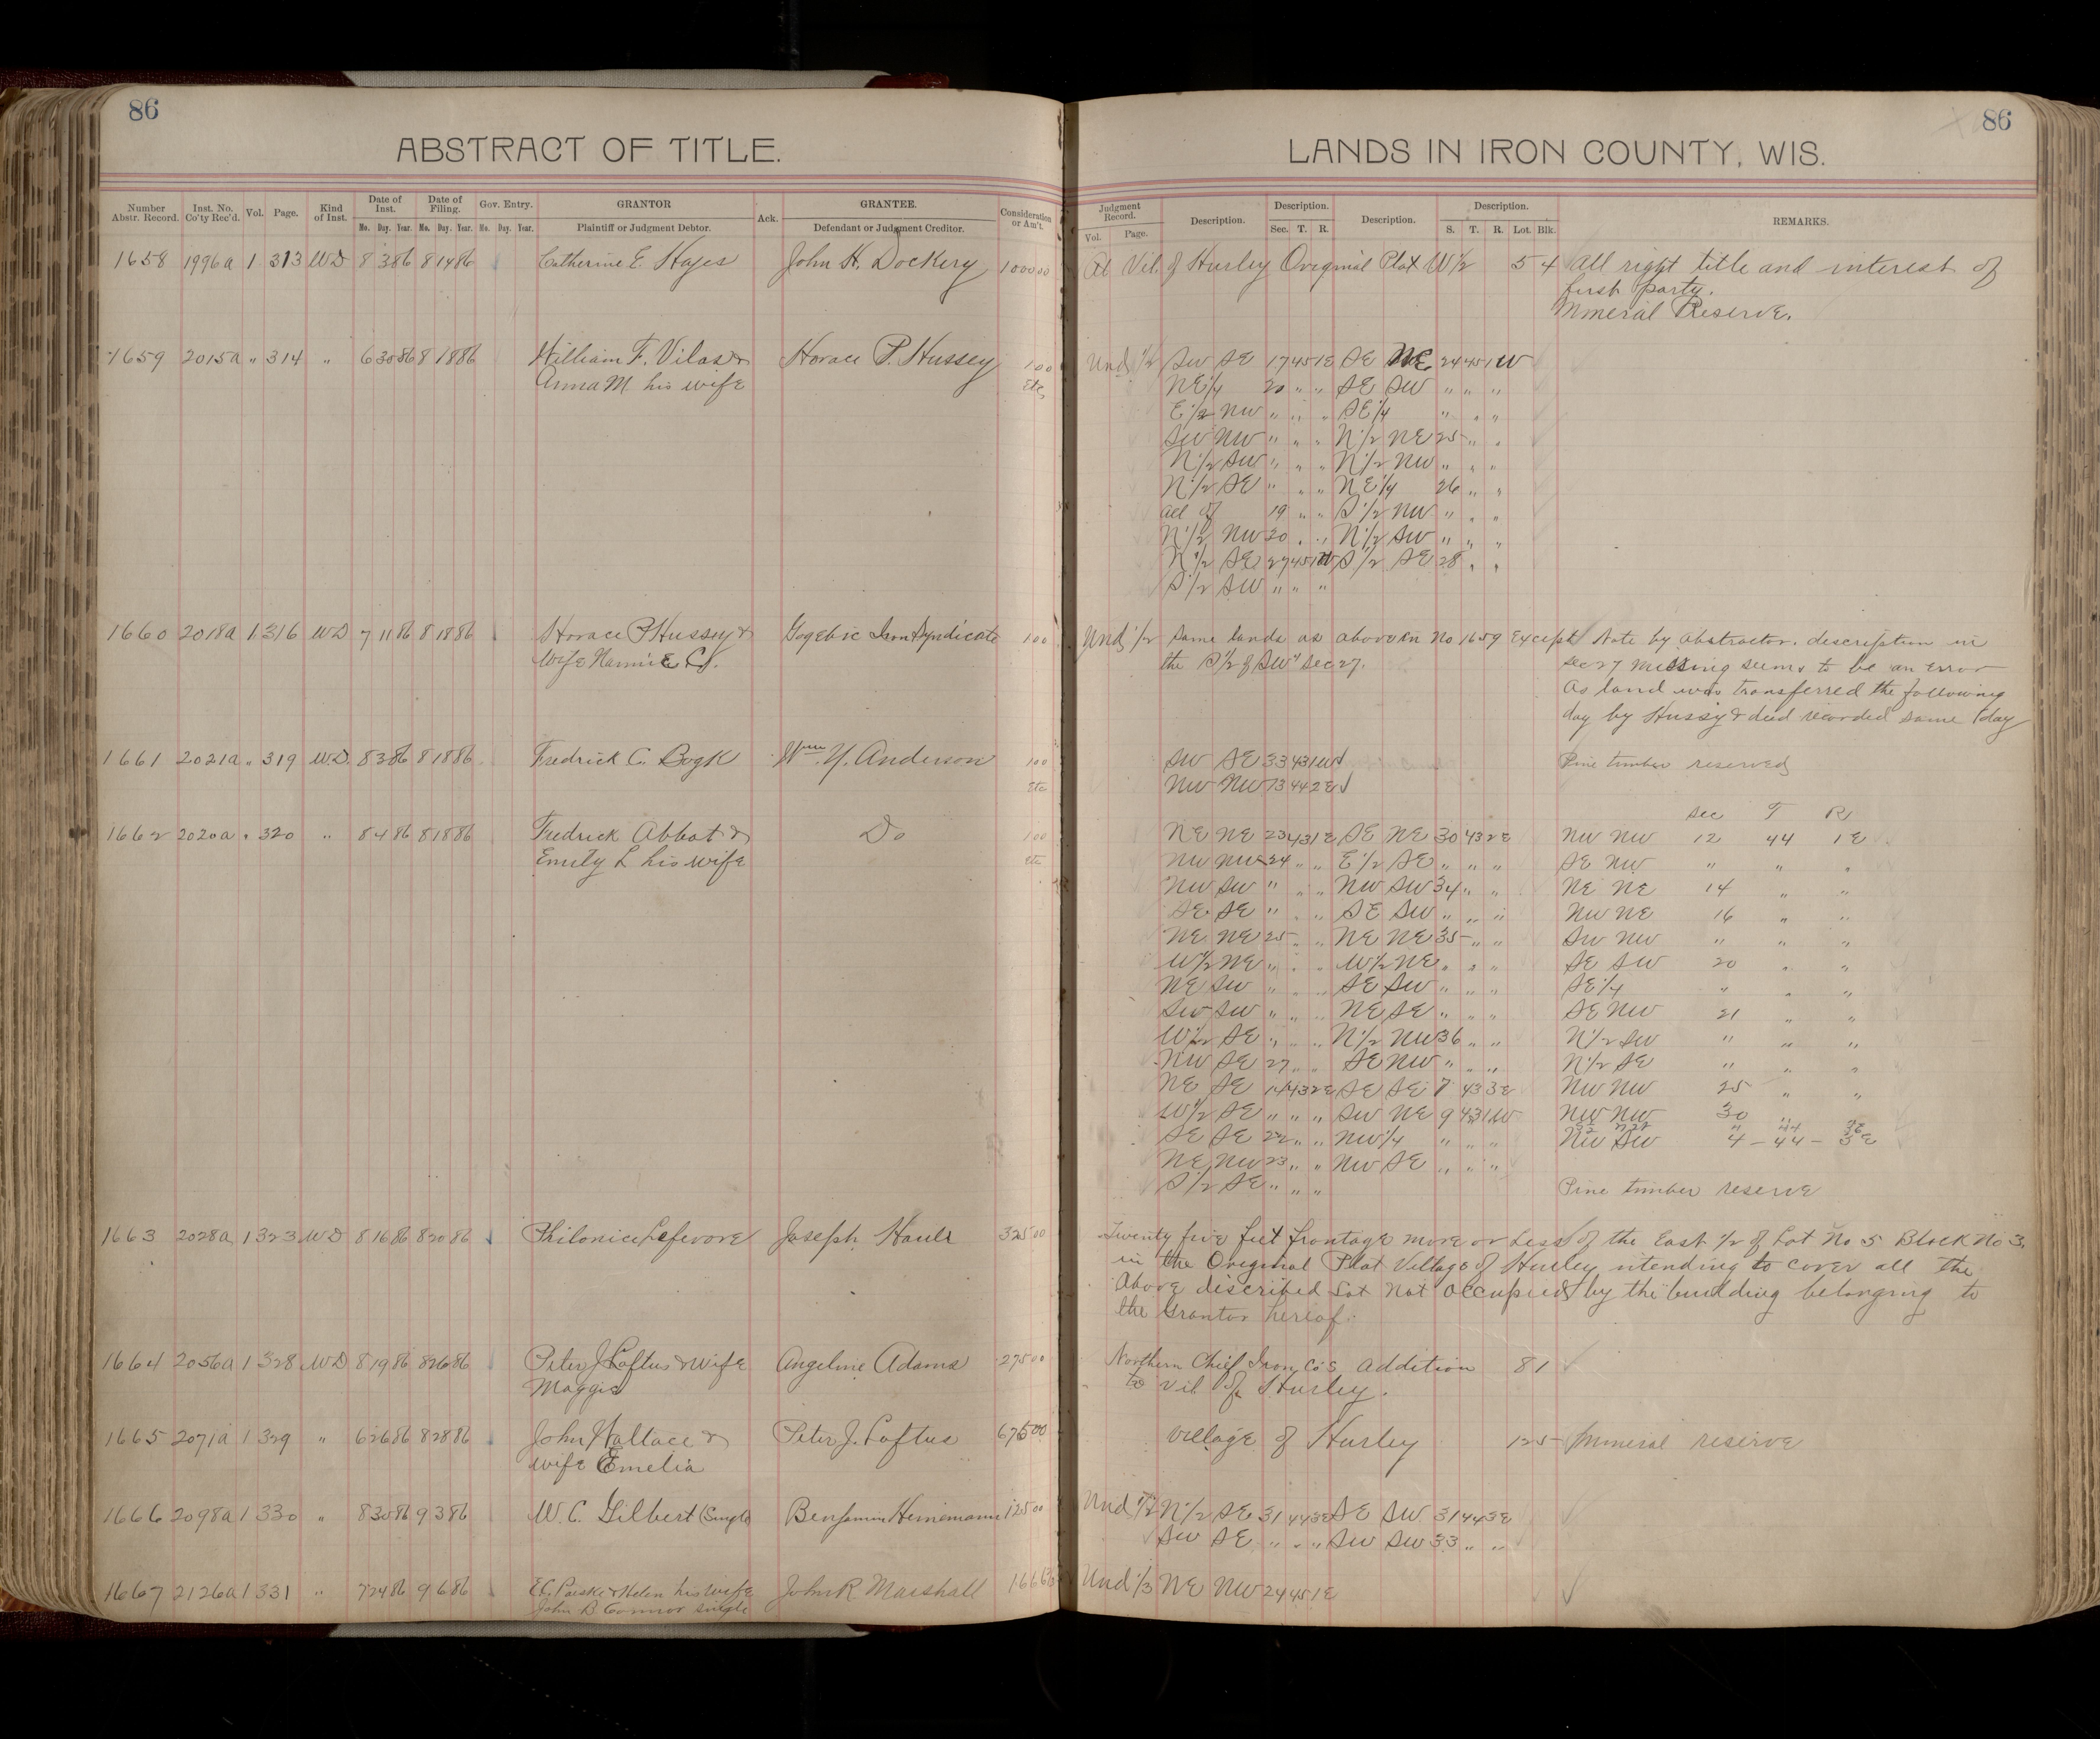 86
ABSTRACT OF TITLE.
Number Abstr. Record. Inst. No. Co'ty Rec'd. Vol. Page. Kind of Inst. Date of Inst. Date of Filing. Gov. Entry. GRANTOR Ack. GRANTEE. Consideration or Am't.
Mo. Day. Year. Mo. Day. Year. Mo. Day. Year. Plaintiff or Judgment Debtor. Defendant or Judgment Creditor.
1658 1996a 1 313 WD 8 3 86 8 14 86 Catherine E. Hayes John H. Dockery 1000 00
1659 2015a " 314 " 6 30 86 8 18 86 William F. Vilas & Horace P. Hussey 1 00
Anna M. his wife Etc
1660 2018a 1 316 WD 7 11 86 8 18 86 Horace P Hussey & Gogebic Iron Syndicate 1 00
Wife Nannie C.
1661 2021a " 319 W.D. 8 3 86 8 18 86 Fredrick C. Bogk Wm. Y. Anderson 1 00
Etc
1662 2020a " 320 " 8 4 86 8 18 86 Fredrick Abbot & Do 1 00
Emily L his wife Etc
1663 2028a 1 323 WD 8 16 86 8 20 86 Philonice Lefevore Joseph 325 00
1664 2056a 1 328 WD 8 19 86 8 26 86 Peter J Loftus & Wife Angeline Adams 275 00
Maggie
1665 2071a 1 329 " 6 26 86 8 28 86 John Wallace & Peter J. Loftus 675 00
wife Emelia
1666 2098a 1 330 " 8 30 86 9 3 86 W. C. Gilbert (Single) Benjamin Heinemann 125 00
1667 2126a 1 331 " 7 24 86 9 6 86 & Helen his wife John R. Marshall
John B Connor single
86
LANDS IN IRON COUNTY, WIS.
Judgment Record. Description. Description. Description. Description. REMARKS.
Vol. Page. Sec. T. R. S. T. R. Lot. Blk.
At Vil. of Hurley Original Plat W 1/2 5 4 All right title and interest of
first party.
Mineral Reserve.
Und 1/2 SW SE 17 45 1E SE NE 24 45 1W
NE 1/4 20 " " SE SW " " "
E 1/2 NW " " " SE 1/4 " " "
SW NW " " " N 1/2 NE 25 " "
N 1/2 SW " " " N 1/2 NW " " "
N 1/2 SE " " " NE 1/4 26 " "
all of 19 " " S 1/2 NW " " "
N 1/2 NW 30 " " N 1/2 SW " " "
N 1/2 SE 27 45 1W S 1/2 SE 28 " "
S 1/2 SW " " "
Und 1/2 Same lands as above in No 1659 Except Note by Abstractor. description in
the S 1/2 of SW" Sec 27. Sec 27 missing seems to be an error
As land was transferred the following
day by Hussy & deed recorded same day
SW SE 33 43 1W Pine timber reserved
NW NW 13 44 2E
Sec T R
NE NE 23 43 1E SE NE 30 43 2E NW NW 12 44 1E
NW NW 24 " " E 1/2 SE " " " SE NW " " "
NW SW " " " NW SW 34 " " NE NE 14 " "
SE SE " " " SE SW " " " NW NE 16 " "
NE NE 25 " " NE NE 35 " " SW NW " " "
W 1/2 NE " " " W 1/2 NE " " " SE SW 20 " "
NE SW " " " SE SW " " " SE 1/4 " " "
SW SW " " " NE SE " " " SE NW 21 " "
W 1/2 SE " " " N 1/2 NW 36 " " N 1/2 SW " " "
NW SE 27 " " SE NW " " " N 1/2 SE " " "
NE SE 14 43 2E SE SE 7 43 3E NW NW 25 " "
W 1/2 SE " " " SW NE 9 43 1W NW NW 30 "
SE SE 22 " " NW 1/4 " " " NW SW 4 - 44 - 3E
NE NW 23 " " NW SE " " "
S 1/2 SE " " " Pine timber reserve
Twenty five feet frontage more or less of the East 1/2 of Lot No 5 Block No 3.
in the Original Plat Village of Hurley intending to cover all the
Above described Lot Not occupied by the building belonging to
the Grantor hereof.
Northern Chief Iron Co's Addition 8 1
to Vil of Hurley.
Village of Hurley 12 5 Mineral reserve
Und 1/2 N 1/2 SE 31 44 3E SE SW 31 44 3E
SW SE " " " SW SW 33 " "
Und 1/3 NE NW 24 45 1E